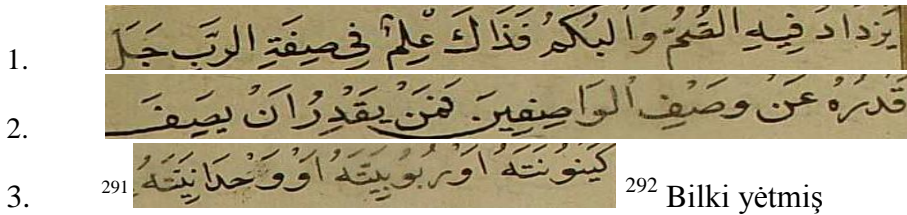 1. يَزدَادَ فِيهِ الصُمُّ وَالبُكمُ فَذَاكَ عِلمٌ فِي صِفَةِ الرَبِّ جَلَّ
2. قَدرُهُ عَن وَصفِ الوَاصِفِينَ فَمَن يَقدِرُ اَن يَصِفَ
3. 291 كَينُونَتَهُ اَو رُبُوبِيَتَهُ اَو وَحدَانِيَتَهُ 292 Bilki yėtmiş